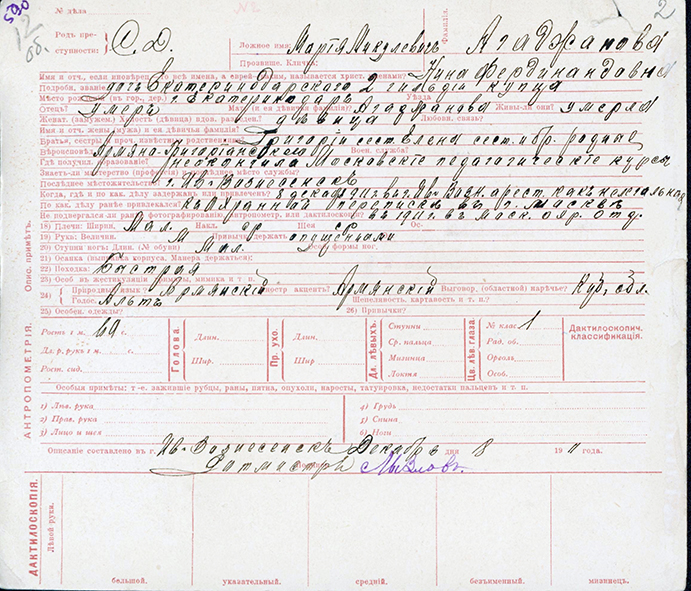 590
12
об.
2
№ дѣла
Родъ преступности: С. Д.
Ложное имя: Марія Микулевичъ
Фамилія. Агаджанова
Прозвище. Кличка:
Имя и отч., если иновѣрец, то всѣ имена, а еврей - имя, называется христ. именами: Нина Фердинандовна
Подробн. званіе дочь Екатеринодарскаго 2 гильдіи купца
Мѣсто рожденія (въ гор., дер.) г. Екатеринодаръ Уѣзда
Отецъ? умеръ Мать (и ея дѣвичья фамилія)? Агаджанова Живы-ли они? умерла
Женат. (замужем.) Холост (дѣвица) вдов. развед. дѣвица Любовн. связь:
Имя и отч. жены (мужа) и ея дѣвичья фамилія?
Братья, сестры и проч. извѣстные родственники: Григорій сест. Елена сест.
Вѣроисповѣд. Армяно-Григоріанскаго Воен. служба?
Гдѣ получил. образованіе? неокончила Московскіе педагогическіе курсы
Знаетъ-ли мастерство (профессію) мѣсто службы?
Послѣднее мѣстожительство: г. Ив. Вознесенскъ
Когда, гдѣ и по как. дѣлу задержанъ или привлеченъ? арест. какъ нелегальная
По как. дѣлу ранѣе привлекался? къ охранной перепискѣ въ г. Москвѣ
Не подвергался ли ранѣе фотографированію, антрометр. или дактилоскопіи? въ 1911 г. въ Моск. охр. отд.
18) Плечи: Ширин. Мал. Накл. ср Шея ср Ос.
19) Рука: Величин. М Привычк. держать опущенными
20) Ступни ногъ: Длин. (№ обуви) Мал. Особ. формы ног.
21) Осанка (выправка корпуса, Манера держаться:
22) Походка: быстрая
23) Особ. въ жестикуляціи мимика и т. п.
24) Природный языкъ? Армянскій Иностр. акцент? Армянскій Выговор, (областной) нарѣчье? Куб. обл.
Голос. Альтъ Шепелявость, картавость и т. п.?
25) Особен. одежды? 26) Привычки?
Описан. примѣтъ.
АНТРОПОМЕТРІЯ.
Ростъ 1 м. 60 с.
Дл. р. рукъ 1 м. с.
Рост. сид.
Голова. Длин. Шир.
Пр. ухо. Длин. Шир.
Дл. лѣвыхъ. Ступни
Ср. пальца
Мизинца
Локтя
Цв. лѣв. глаза. № клас. 1
Рад. об.
Ореолъ
Особ.
Дактилоскопич. классификація.
Особыя примѣты: т-е. зажившіе рубцы, раны, пятна, опухоли, наросты, татуировка, недостатки пальцевъ и т. п.
1) Лѣв. рука 4) Грудь
2) Прав. рука 5) Спина
3) Лицо и шея 6) Ноги
Описаніе составлено въ г. Ив.-Вознесенскъ Декабрь дня 8 1911 года.
Ротмистръ
ДАКТИЛОСКОПІЯ.
Лѣвой руки.
большой. указательный. средній. безъименный. мизинец.